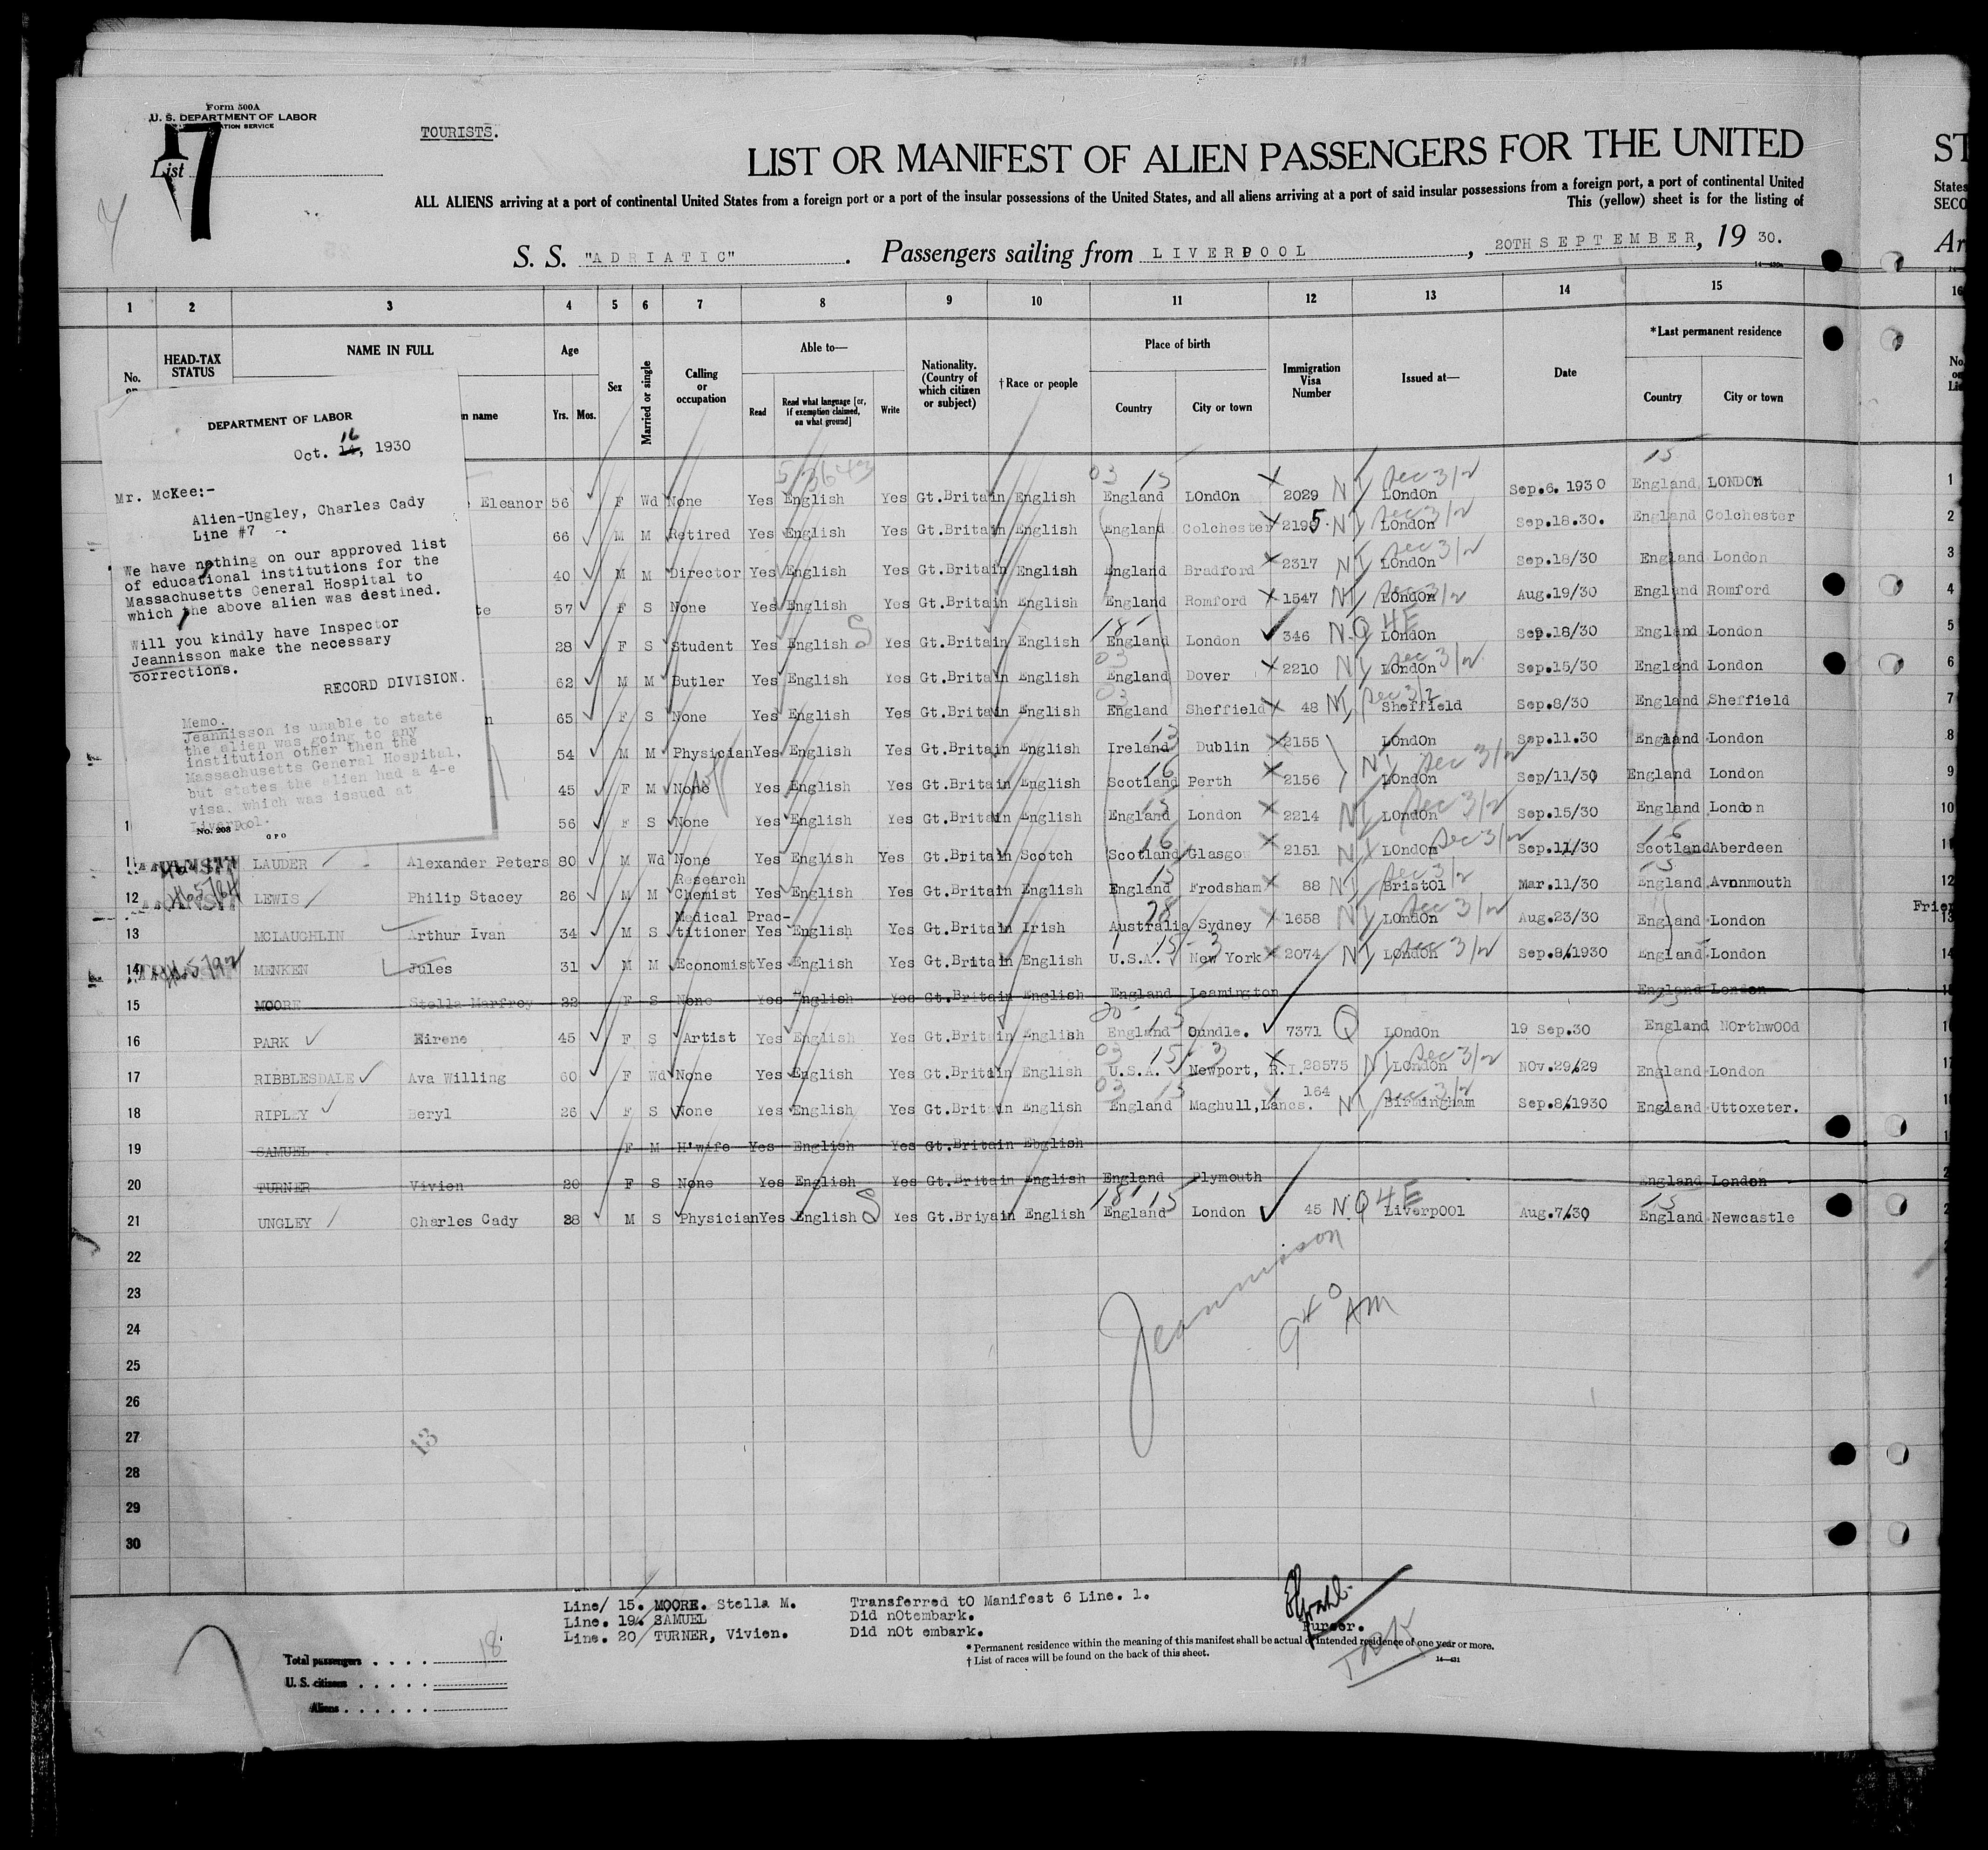 Form 500A
U. S. DEPARTMENT OF LABOR
List 7
TOURISTS.
LIST OR MANIFEST OF ALIEN PASSENGERS FOR THE UNITED
ALL ALIENS arriving at a port of continental United States from a foreign port or a port of the insular possessions of the United States, and all aliens arriving at a port of said insular possessions from a foreign port, a port of continental United
This (yellow) sheet is for the listing of
S. S. "ADRIATIC". Passengers sailing from LIVERPOOL, 20TH SEPTEMBER, 19 30.
1 2 3 4 5 6 7 8 9 10 11 12 13 14 15
No. HEAD-TAX STATUS NAME IN FULL Age Sex Married or single Calling or occupation Able to— Nationality. (Country of which citizen or subject) †Race or people Place of birth Immigration Visa Number Issued at— Date *Last permanent residence
Yrs. Mos. Read Read what language [or, if exemption claimed, on what ground] Write Country City or town Country City or town
DEPARTMENT OF LABOR
Oct. 16, 1930
Mr. McKee:-
Alien-Ungley, Charles Cady
Line #7
We have nothing on our approved list
of educational institutions for the
Massachusetts General Hospital to
which the above alien was destined.
Will you kindly have Inspector
Jeannisson make the necessary
corrections.
RECORD DIVISION.
Memo.
Jeannisson is unable to state
the alien was going to any
institution other then the
Massachusetts General Hospital,
but states the alien had a 4-e
visa, which was issued at
Liverpool.
No. 203 GPO
Eleanor 56 F Wd None Yes English Yes Gt.Britain English England London 2029 London Sep.6. 1930 England LONDON
66 M M Retired Yes English Yes Gt.Britain English England Colchester 2195 London Sep.18.30. England Colchester
40 M M Director Yes English Yes Gt.Britain English England Bradford 2317 London Sep.18/30 England London
57 F S None Yes English Yes Gt.Britain English England Romford 1547 London Aug.19/30 England Romford
28 F S Student Yes English Yes Gt.Britain English England London 346 N.Q 4E London Sep.18/30 England London
62 M M Butler Yes English Yes Gt.Britain English England Dover 2210 London Sep.15/30 England London
65 F S None Yes English Yes Gt.Britain English England Sheffield 48 Sheffield Sep.8/30 England Sheffield
54 M M Physician Yes English Yes Gt.Britain English Ireland Dublin 2155 London Sep.11.30 England London
45 F M None Yes English Yes Gt.Britain English Scotland Perth 2156 London Sep/11/30 England London
56 F S None Yes English Yes Gt.Britain English England London 2214 London Sep.15/30 England London
11 LAUDER Alexander Peters 80 M Wd None Yes English Yes Gt.Britain Scotch Scotland Glasgow 2151 London Sep.11/30 Scotland Aberdeen
12 LEWIS Philip Stacey 26 M M Research Chemist Yes English Yes Gt.Britain English England Frodsham 88 Bristol Mar.11/30 England Avonmouth
13 MCLAUGHLIN Arthur Ivan 34 M S Medical Practitioner Yes English Yes Gt.Britain Irish Australia Sydney 1658 London Aug.23/30 England London
14 MENKEN Jules 31 M M Economist Yes English Yes Gt.Britain English U.S.A. New York 2074 London Sep.8/1930 England London
15 MOORE Stella Marfroy 22 F S None Yes English Yes Gt.Britain English England Leamington England London
16 PARK Eirene 45 F S Artist Yes English Yes Gt.Britain English England Oundle. 7371 Q London 19 Sep.30 England Northwood
17 RIBBLESDALE Ava Willing 60 F Wd None Yes English Yes Gt.Britain English U.S.A. Newport, R.I. 28575 London Nov.29/29 England London
18 RIPLEY Beryl 26 F S None Yes English Yes Gt.Britain English England Maghull, Lancs. 164 Birmingham Sep.8/1930 England Uttoxeter.
19 SAMUEL F M H'wife Yes English Yes Gt.Britain Ebglish
20 TURNER Vivien 20 F S None Yes English Yes Gt.Britain English England Plymouth England London
21 UNGLEY Charles Cady 28 M S Physician Yes English Yes Gt.Briyain English England London 45 N.Q 4E Liverpool Aug.7/30 England Newcastle
22
23
24
25
26
27
28
29
30
Jeannisson
9 40 AM
13
Line/ 15. MOORE. Stella M. Transferred to Manifest 6 Line. 1.
Line. 19. SAMUEL Did notembark.
Line. 20 TURNER, Vivien. Did not embark.
Purser.
* Permanent residence within the meaning of this manifest shall be actual or intended residence of one year or more.
† List of races will be found on the back of this sheet.
14—431
Total passengers 18
U. S. citizens
Aliens